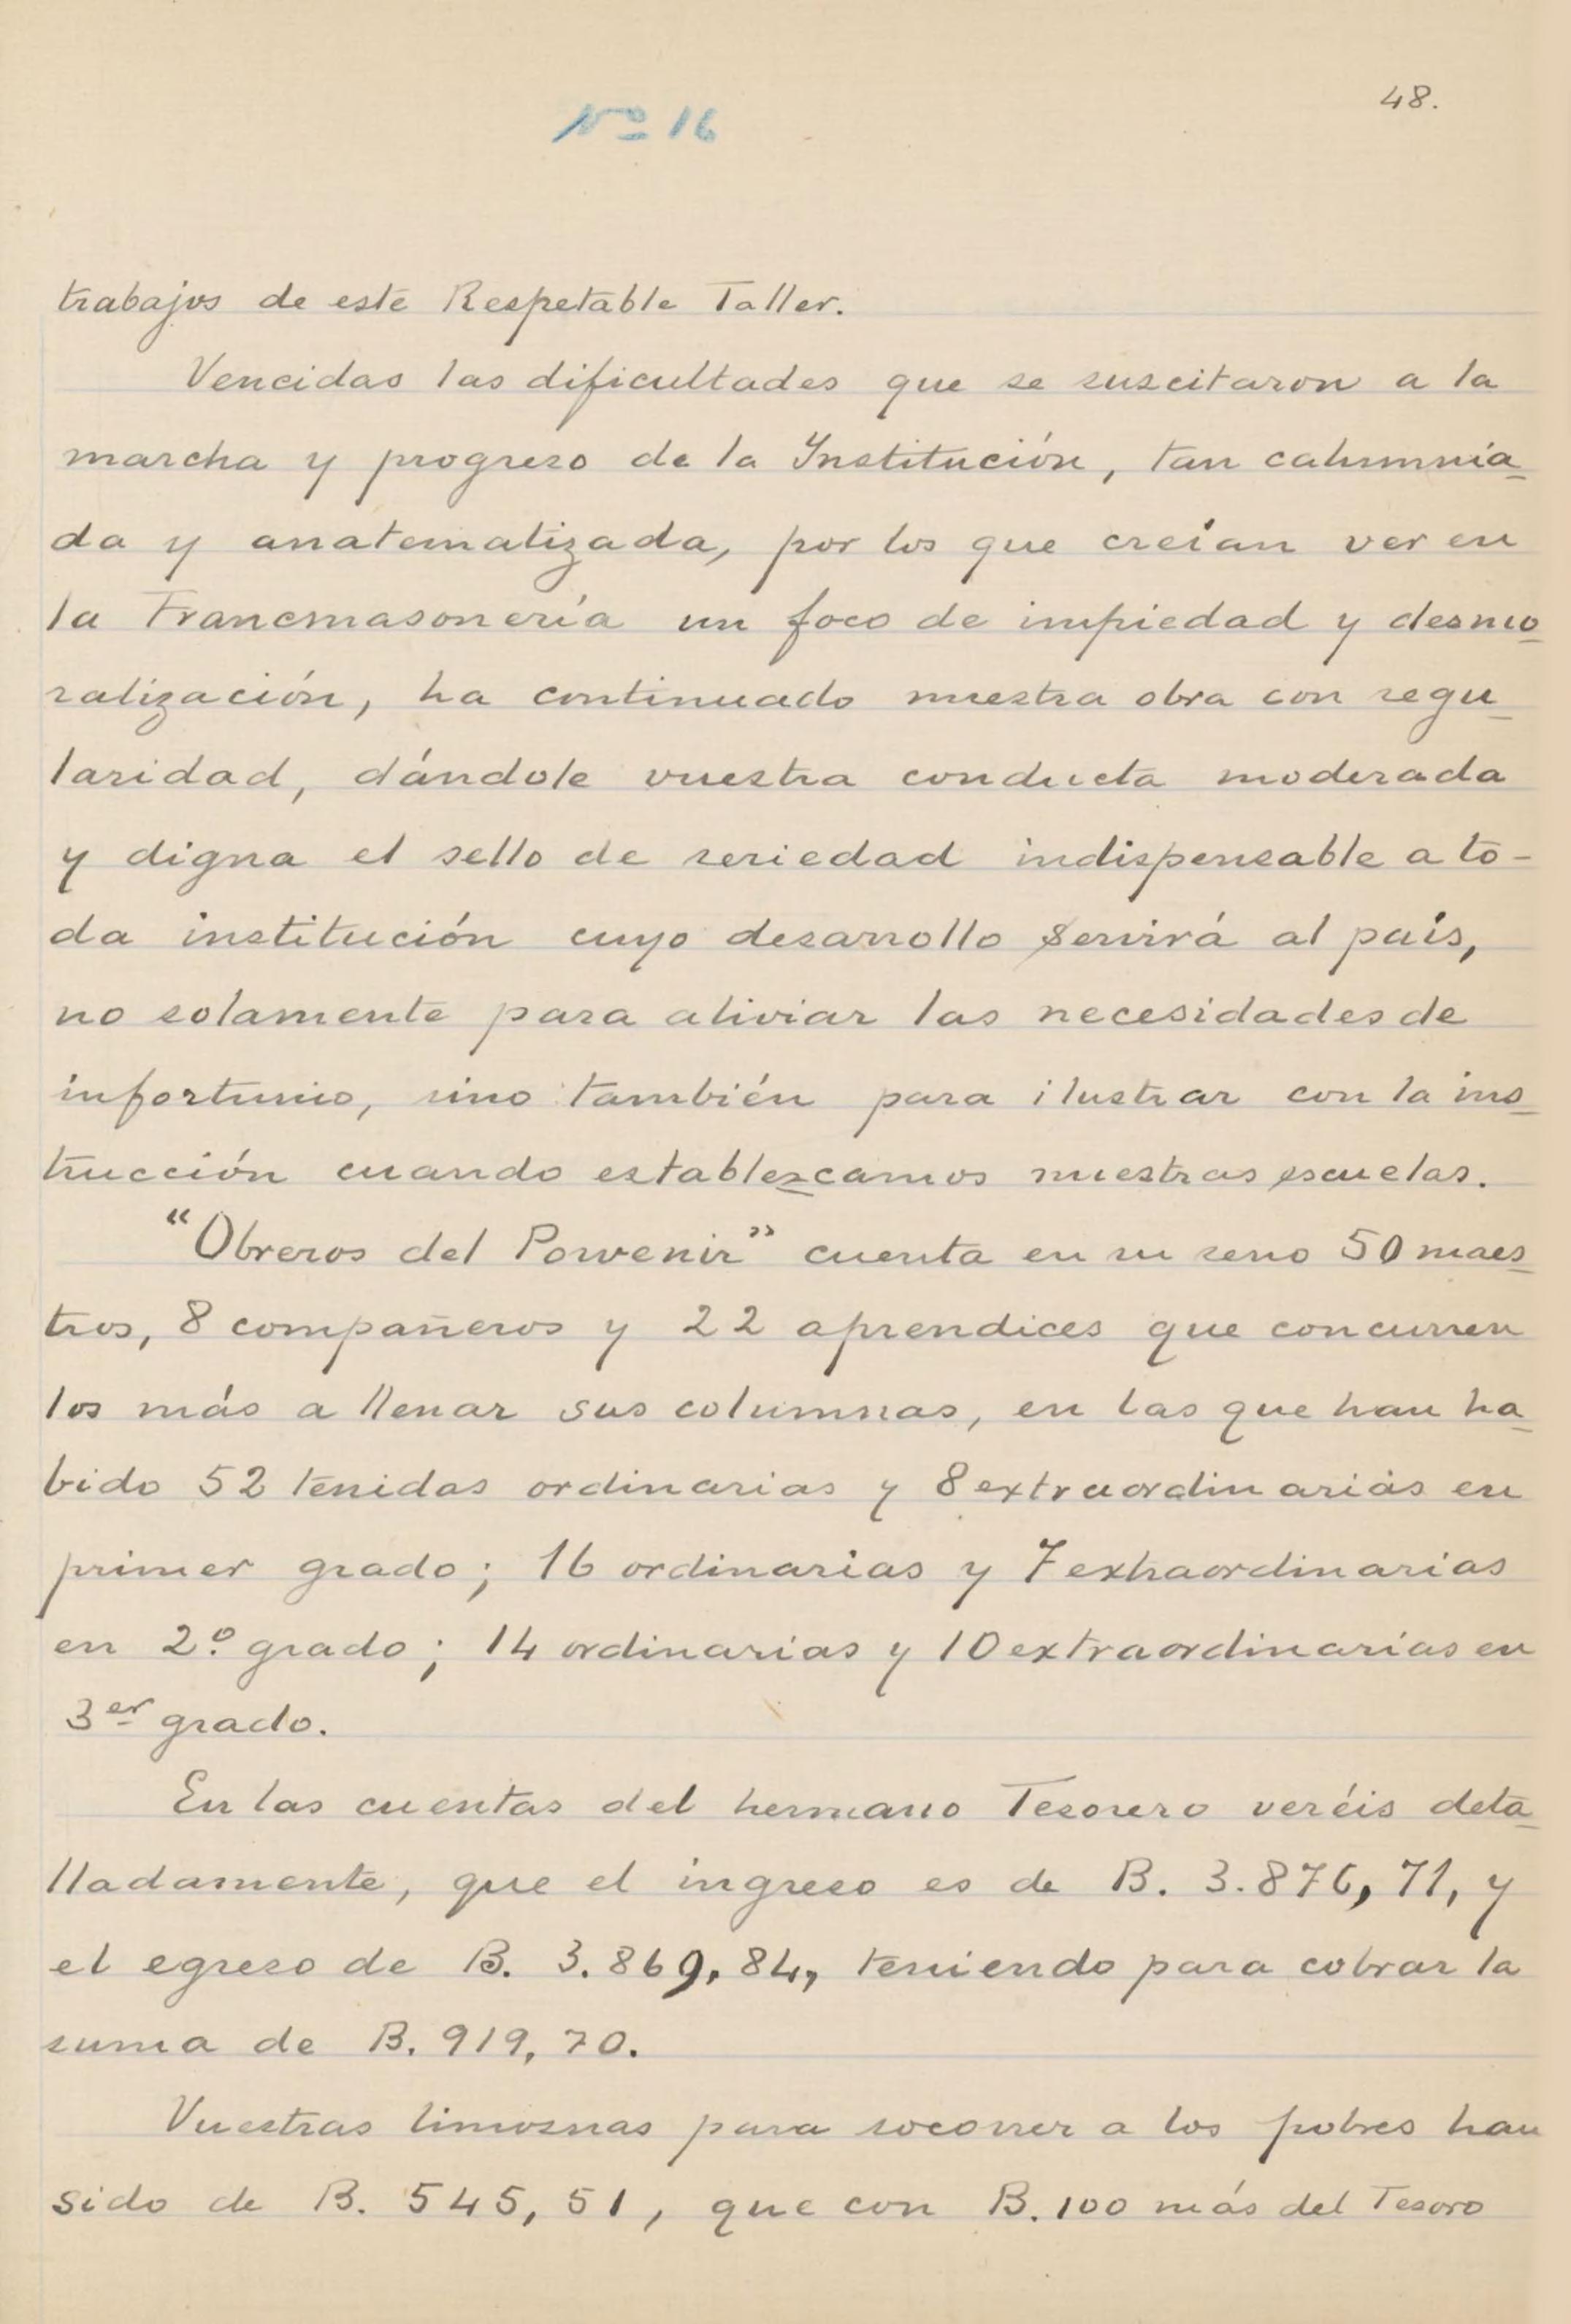 48.
Nº 16
trabajos de este Respetable Taller.
Vencidas las dificultades que se suscitaron a la
marcha y progreso de la Institución, tan calumnia_
da y anatematizada, por los que creían ver en
la Francmasonería un foco de impiedad y desmo_
ralización, ha continuado nuestra obra con regu_
laridad, dándole vuestra conducta moderada
y digna el sello de seriedad indispensable a to-
da institución cuyo desarrollo servirá al país,
no solamente para aliviar las necesidades de
infortunio, sino también para ilustrar con la ins_
trucción cuando establezcamos nuestras escuelas.
"Obreros del Porvenir" cuenta en su seno 50 maes_
tros, 8 compañeros y 22 aprendices que concurren
los más a llenar sus columnas, en las que han ha_
bido 52 tenidas ordinarias y 8 extraordinarias en
primer grado; 16 ordinarias y 7 extraordinarias
en 2º. grado; 14 ordinarias y 10 extraordinarias en
3er grado.
En las cuentas del hermano Tesorero veréis deta_
lladamente, que el ingreso es de B. 3.876,71, y
el egreso de B. 3.869,84, teniendo para cobrar la
suma de B. 919,70.
Vuestras limosnas para socorrer a los pobres han
sido de B. 545,51, que con B. 100 más del Tesoro